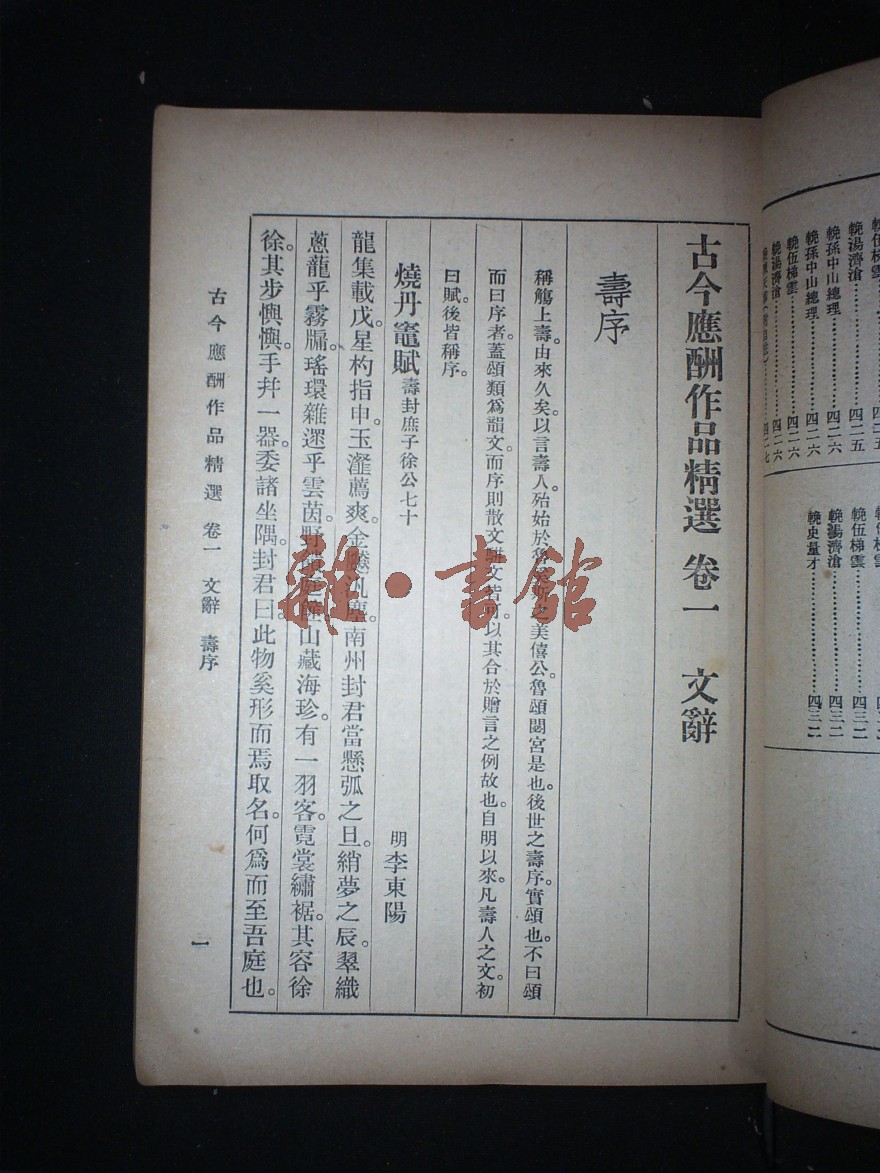 輓伍梯雲⋯⋯⋯⋯四二五
輓湯濟滄⋯⋯⋯⋯四二五
輓孫中山總理⋯⋯⋯⋯四二六
輓孫中山總理⋯⋯⋯⋯四二六
輓伍梯雲⋯⋯⋯⋯四二六
輓湯濟滄⋯⋯⋯⋯四二六
四二七
輓伍梯雲⋯⋯⋯⋯四三二
輓湯濟滄⋯⋯⋯⋯四三二
輓史量才⋯⋯⋯⋯四三二
古今應酬作品精選 卷一 文辭
壽序
稱觴上壽。由來久矣。以言壽人。殆始於魯奚斯之美僖公。魯頌閟宮是也。後世之壽序。實頌也。不曰頌
而曰序者。蓋頌類爲韻文。而序則散文駢文皆可。以其合於贈言之例故也。自明以來。凡壽人之文。初
曰賦。後皆稱序。
燒丹竈賦 壽封庶子徐公七十 明 李東陽
龍集載戊。星杓指申。玉瀣薦爽。金飈汎塵。南州封君當懸弧之旦。綃夢之辰。翠織
蔥蘢乎霧牖。瑤環雜遝乎雲茵。野 山藏海珍。有一羽客。霓裳繡裾。其容徐
徐。其步懊懊。手幷一器。委諸坐隅。封君曰。此物奚形而焉取名。何爲而至吾庭也。
古今應酬作品精選 卷一 文辭 壽序
一
雜·書館